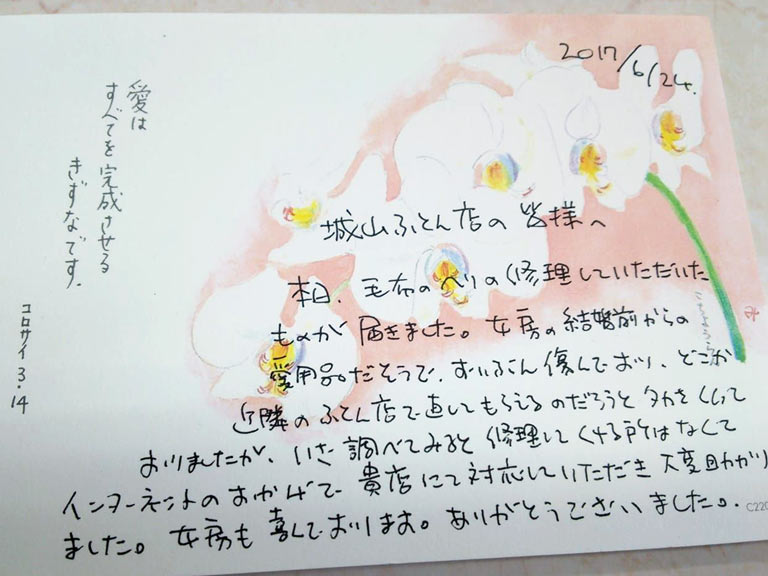 2017/6/24.
愛は
すべてを完成させる
きずなです.
コロサイ 3・14
城山ふとん店の皆様へ
本日、毛布のヘリの修理していただいた
ものが届きました。女房の結婚前からの
愛用品だそうで、ずいぶん傷んでおり、どこか
近隣のふとん店で直してもらえるのだろうとタカをくくって
おりましたが、いざ調べてみると修理してくれる所はなくて
インターネットのおかげで貴店にて対応していただき大変助かり
ました。女房も喜んでおります。ありがとうございました。
C220